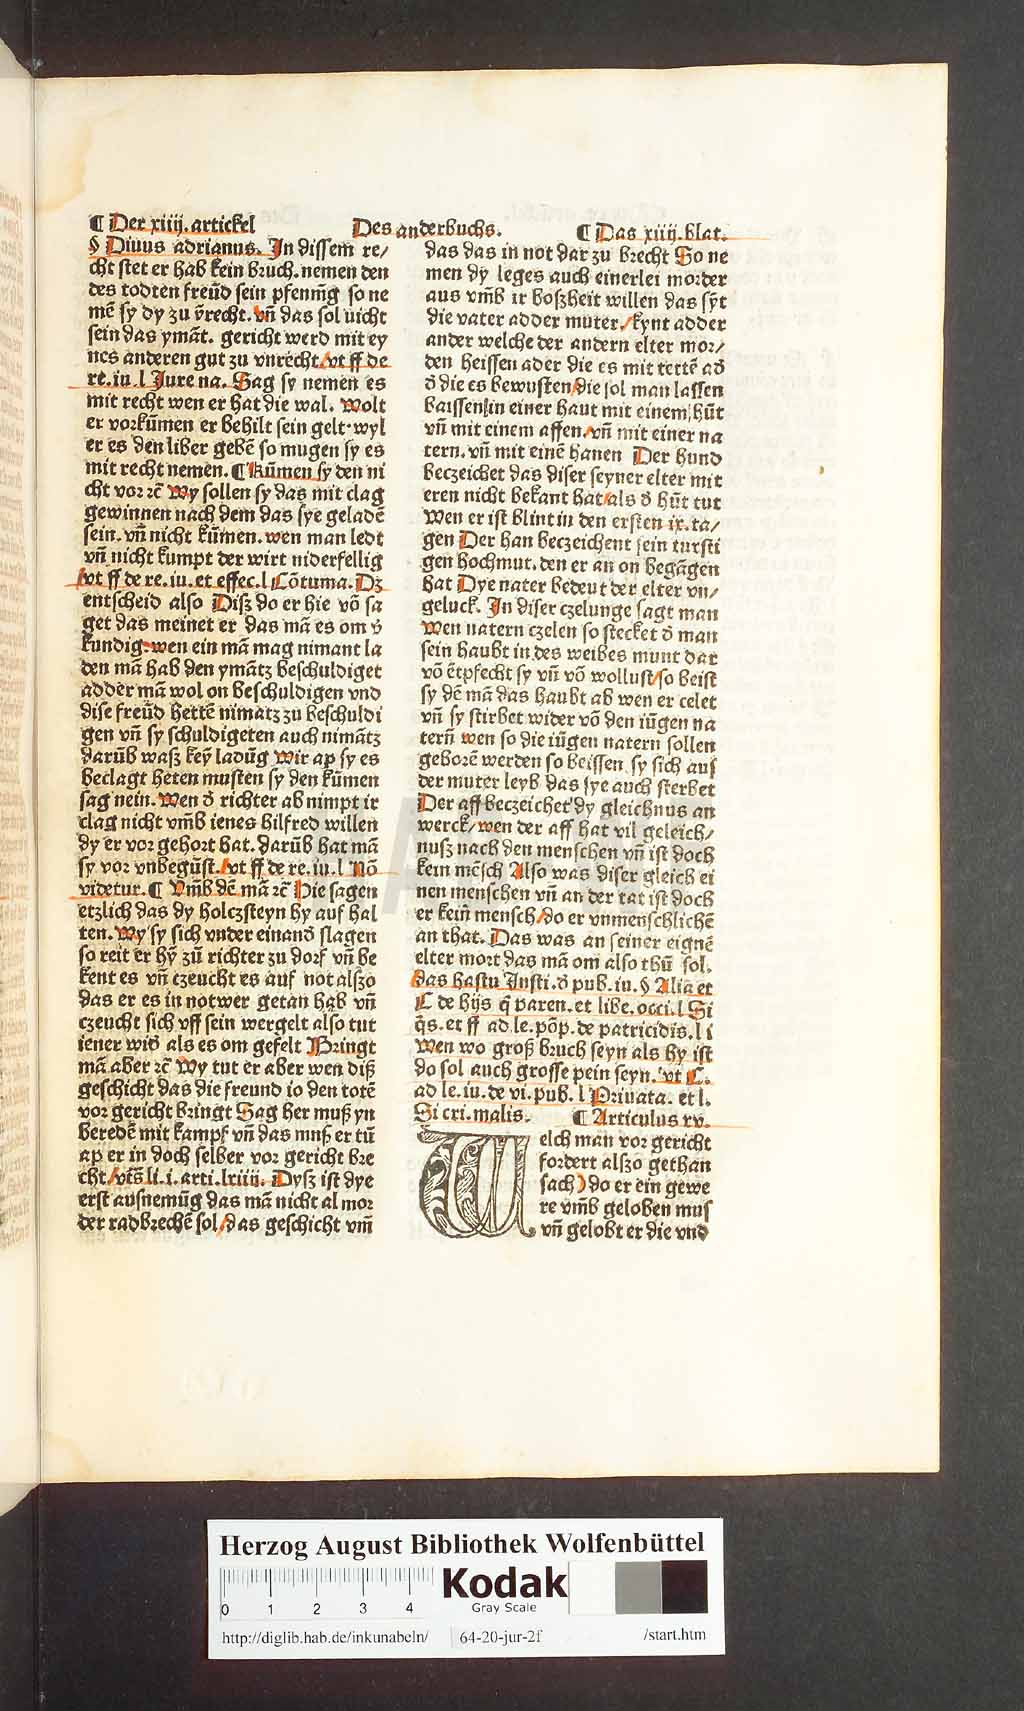 ¶ Der xiiij. artickel Des anderbuchs. ¶ Das xiiij. blat.
§ Diuus adrianus. In dissem re/
cht stet er hab kein bruch. nemen den
des todten freũd sein pfenning so ne
mẽ sy dy zu vrecht. vñ das sol uicht
sein das ymãt. gericht werd mit ey
nes anderen gut zu vnrecht / vt ff de
re. iu. l Jure na. Sag sy nemen es
mit recht wen er hat die wal. Wolt
er vorkũmen er behilt sein gelt. wyl
er es den liber gebẽ so mugen sy es
mit recht nemen. ¶ Kũmen sy den ni
cht vor ꝛc̃ Wy sollen sy das mit clag
gewinnen nach dem das sye geladẽ
sein. vñ nicht kũmen. wen man ledt
vñ nicht kumpt der wirt niderfellig
/ vt ff de re. iu. et effec. l Cõtuma. Dz
entscheid also Diß do er hie võ sa
get das meinet er das mã es om v̾
kundig. wen ein mã mag nimant la
den mã hab den ymãtz beschuldiget
adder mã wol on beschuldigen vnd
dise freũd hettẽ nimatz zu beschuldi
gen vñ sy schuldigeten auch nimãtz
darũb waß keỹ ladũg Wir ap sy es
beclagt heten musten sy den kũmen
sag nein. Wen d̾ richter ab nimpt ir
clag nicht vm̃b ienes hilfred willen
dy er vor gehort hat. darũb hat mã
sy vor vnbegũst. / vt ff de re. iu. l Nõ
videtur. ¶ Vm̃b dẽ mã ꝛc̃ Hie sagen
etzlich das dy holczsteyn hy auf hal
ten. Wy sy sich vnder einand̾ slagen
so reit er hỹ zũ richter zu dorf vñ be
kent es vñ czeucht es auf not alßo
das er es in notwer getan hab vñ
czeucht sich vff sein wergelt also tut
iener wid̾ als es om gefelt Bringt
mã aber ꝛc̃ Wy tut er aber wen diß
geschicht das die freund io den totẽ
vor gericht bringt Sag her muß yn
beredẽ mit kampf vñ das muß er tũ
ap er in doch selber vor gericht bre
cht / vts̃ li. i. arti. lxiiij. Dyß ist dye
erst ausnemũg das mã nicht al mor
der radbrechẽ sol / das geschicht vm̃
das das in not dar zu brecht So ne
men dy leges auch einerlei morder
aus vm̃b ir boßheit willen das sỹt
die vater adder muter / kynt adder
ander welche der andern elter mor/
den heissen ader die es mit tertẽ ad̾
d̾ die es bewusten / die sol man lassen
baissen in einer haut mit einem hũt
vñ mit einem affen. vñ mit einer na
tern. vñ mit einẽ hanen Der hund
beczeichet das diser seyner elter mit
eren nicht bekant hat / als d̾ hũt tut
Wen er ist blint in den ersten ix. ta/
gen Der han beczeichent sein tursti
gen hochmut. den er an on begãgen
hat Dye nater bedeut der elter vn/
geluck. In diser czelunge sagt man
Wen natern czelen so stecket d̾ man
sein haubt in des weibes munt dar
võ ẽtpfecht sy vñ võ wollust / so beist
sy dẽ mã das haubt ab wen er celet
vñ sy stirbet wider võ den iũgen na
terñ wen so die iũgen natern sollen
geborẽ werden so beissen sy sich aus
der muter leyb das sye auch sterbet
Der aff beczeichet dy gleichnus an
werck / wen der aff hat vil geleich/
nuß nach den menschen vñ ist doch
kein mẽsch Also was diser gleich ei
nen menschen vñ an der tat ist doch
er keiñ mensch / do er vnmenschlichẽ
an that. Das was an seiner eignẽ
elter mort das mã om also thũ sol.
das hastu Insti. d̾ pub. iu. § Alia et
C de hijs q̃ paren. et libe. occi. l Si
q̃s. et ff ad le. põp. de patricidis. l i
Wen wo groß bruch seyn als hy ist
do sol auch grosse pein seyn. vt C.
ad le. iu. de vi. pub. l Priuata. et l.
Si cri. malis. ¶ Articulus xv.
Welch man vor gericht
fordert alßo gethan
sach) do er ein gewe
re vm̃b geloben mus
vñ gelobt er die vnd
Herzog August Bibliothek Wolfenbüttel
0 1 2 3 4
Kodak
Gray Scale
http://diglib.hab.de/inkunabeln/ 64-20-jur-2f /start.htm